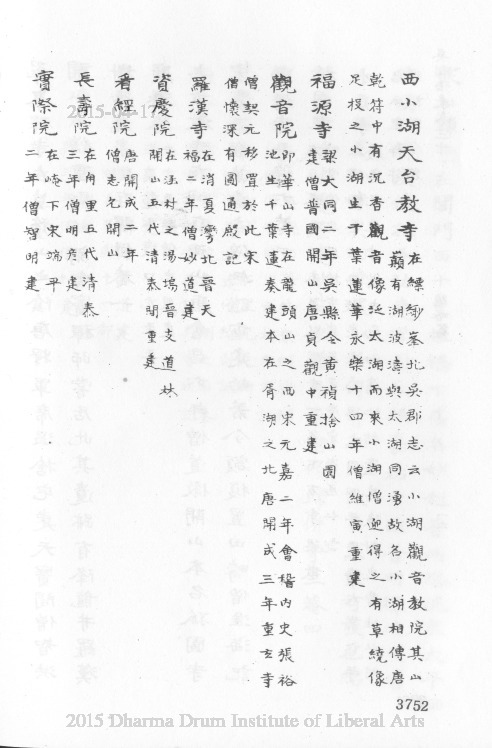 西小湖天台教寺在縹緲峯北吳郡志云小湖觀音教院其山
巔有湖波濤與太湖同湧故名小湖相傳唐
乾符中有沉香觀音像泛太湖而來小湖僧迎得之有草繞像
足投之小湖生千葉蓮華永樂十四年僧維寅重建
福源寺梁大同二年吳縣令黃禎捨山園
建僧普國開山唐貞觀中重建
觀音院即華山寺在龍頭山之西宋元嘉二年會稽內史張裕
池生千葉蓮奏建本在胥湖之北唐開成三年重玄寺
僧契元移置於此宋
僧懷深有圓通殿記
羅漢寺在消夏灣北晉天
福二年僧妙道建
資慶院在涵村之湯塢晉支道林
開山五代清泰間重建
看經院唐開成二年
僧志允開山
長壽院在甪里五代清泰
三年僧明彥建
實際院在崦下宋端平
二年僧智明建
3752
2015-04-17
2015 Dharma Drum Institute of Liberal Arts